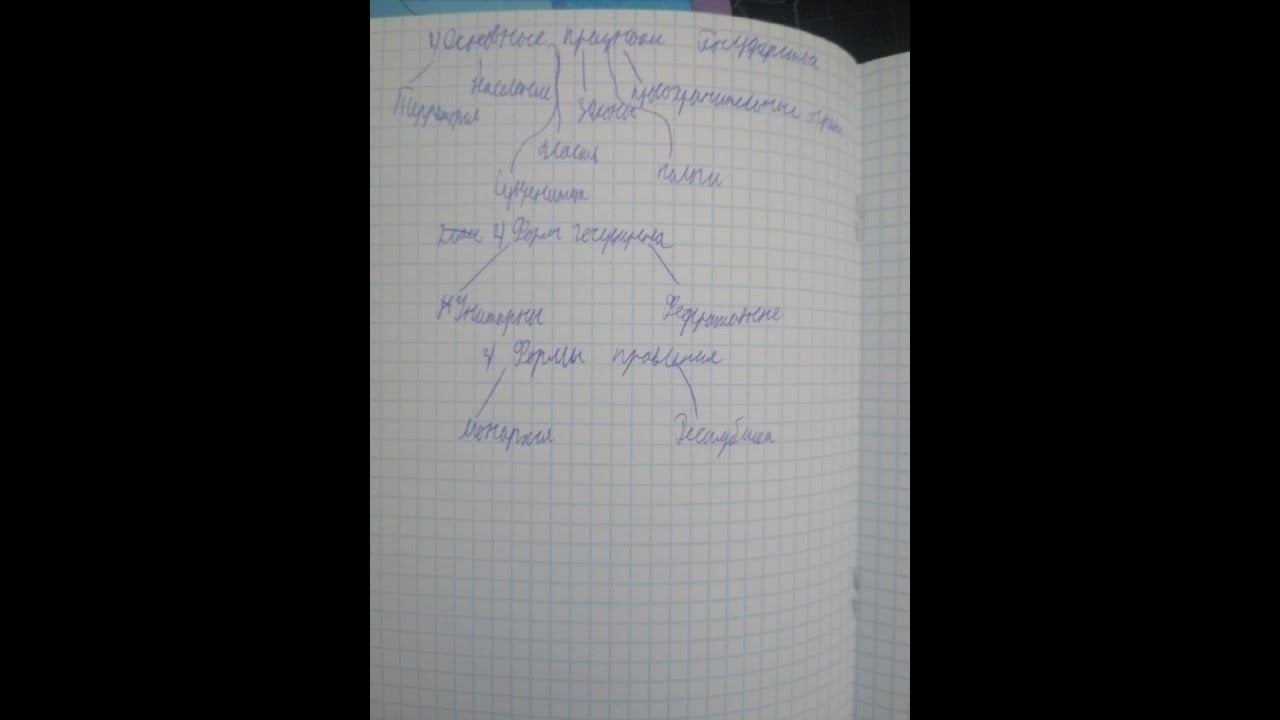 1) Основные признаки Государства
Население
Территория
Законы
правоохранительные органы
Власть
налоги
Суверенитет
2) Формы государства
Унитарны
Федеративные
3) Формы правления
Монархия
Республика